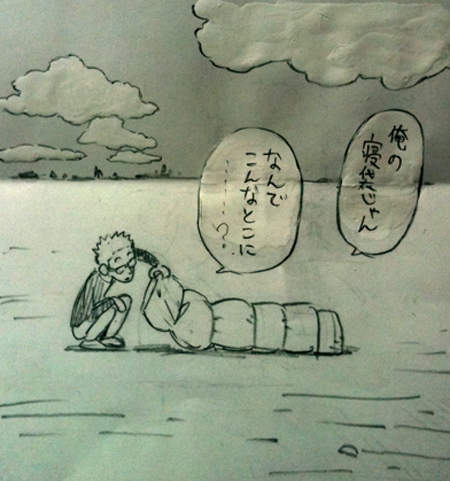 俺の
寝袋じゃん
なんで
こんなとこに
………?‥